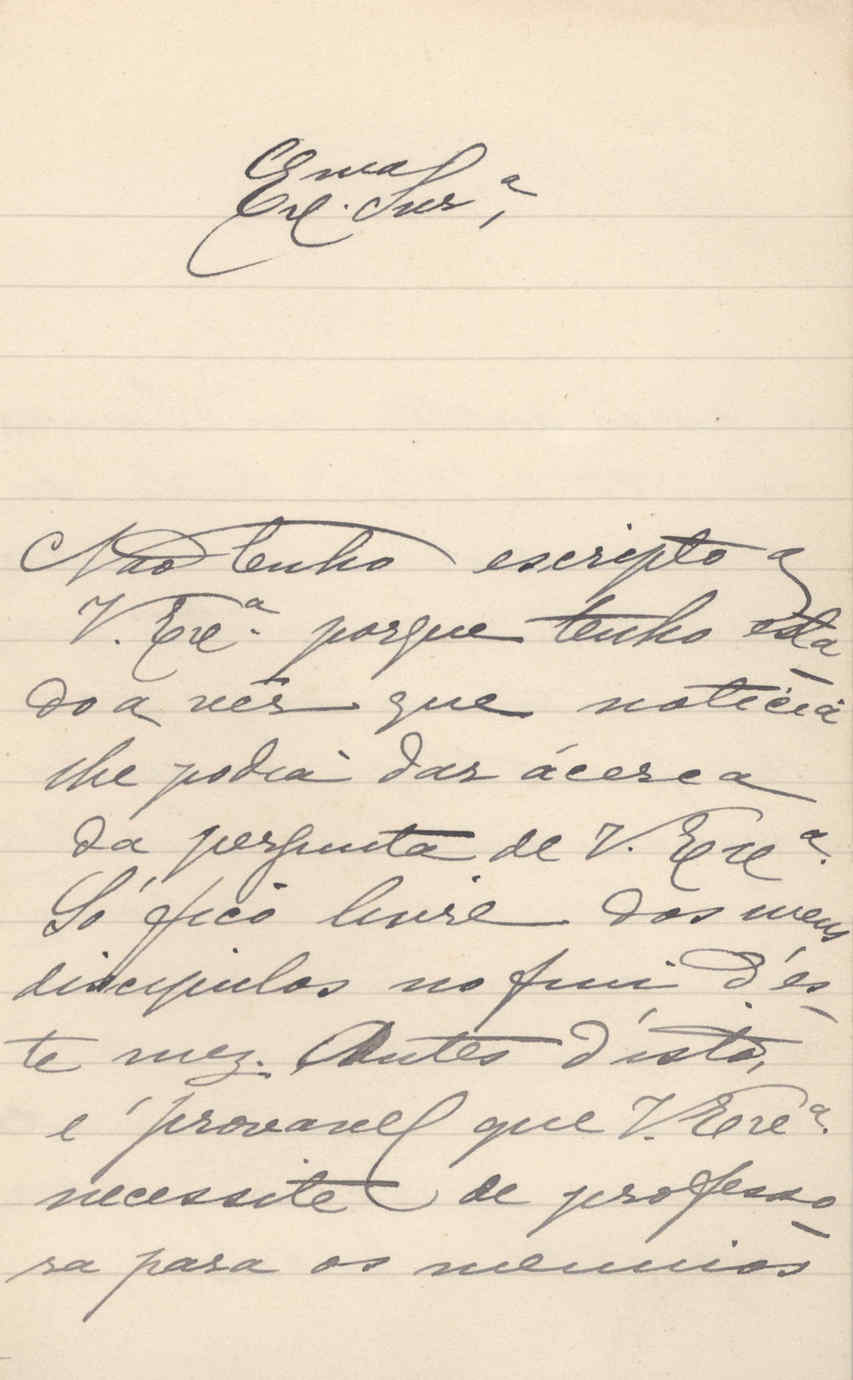 Exma
Ex. Snrª,
Não tenho escripto a
V. Excª. porque tenho esta-
do a vêr que noticia
lhe podia dar ácerca
da pergunta de V. Excª.
Só fico livre dos meus
discipulos no fim d'es-
te mez. Antes d'isto,
é provavel que V. Excª.
necessite de professo-
ra para os meninos